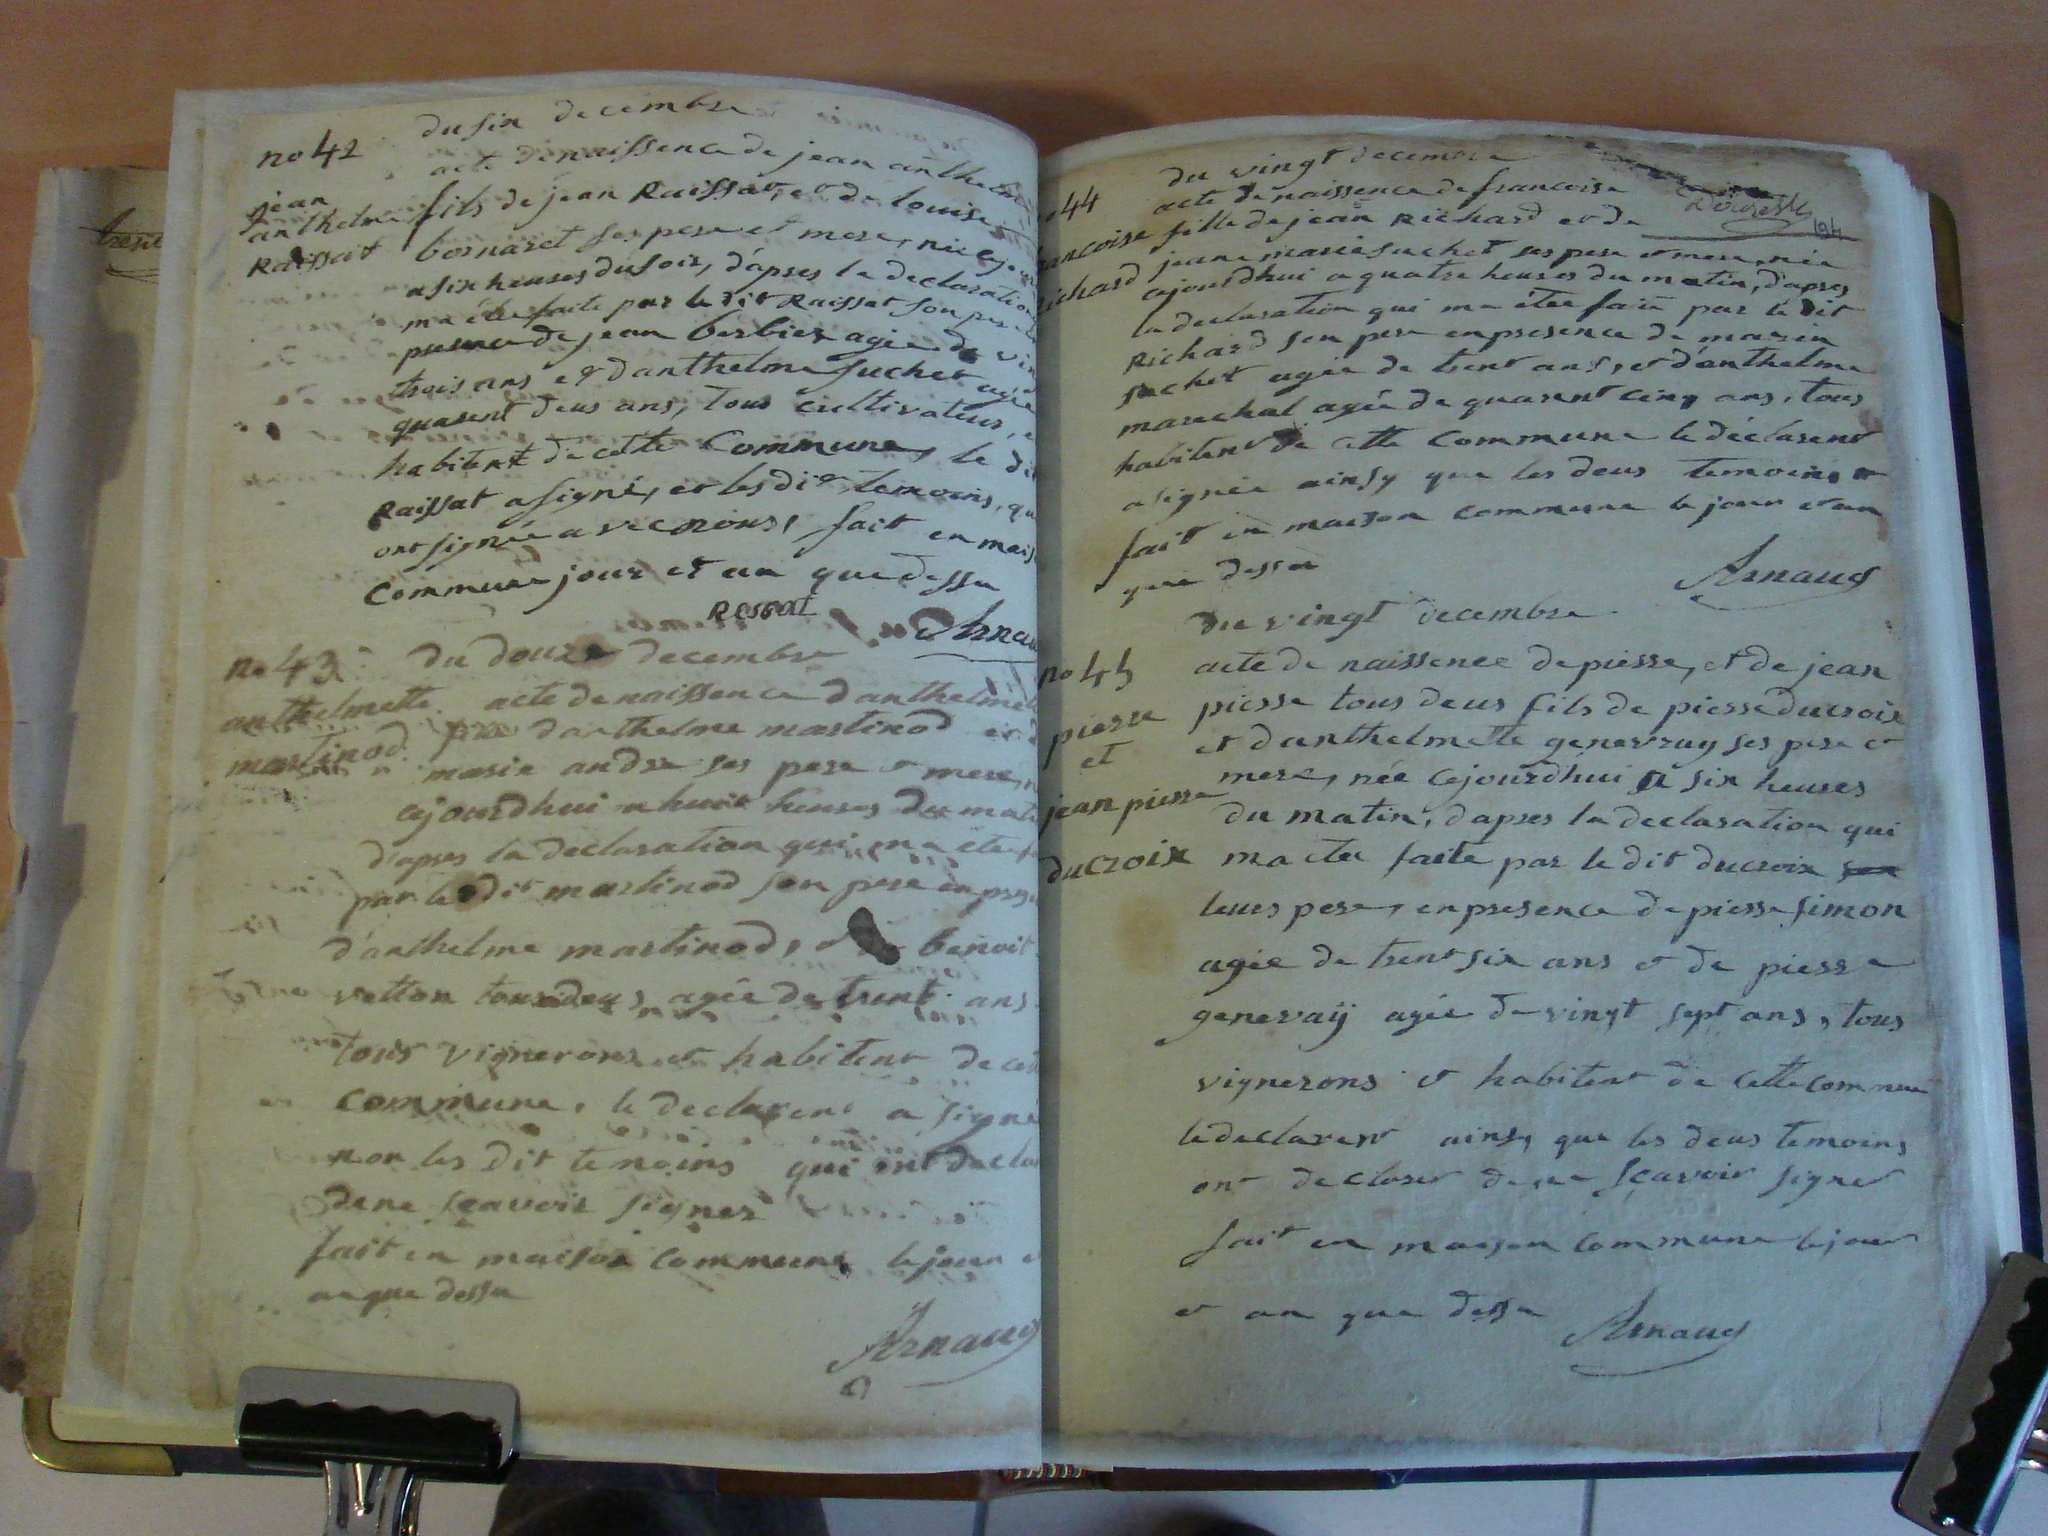 du six decembre
no 42
acte de naissence de jean anthelme
jean
anthelme
Raissat
fils de jean Raissat, et de louise
bornaret ses pere et mere, née
a six heures du soir, d'apres la declaration
ma étée faite par le dit Raissat son pere
de jean berbier agée de
trois ans et d'anthelme suchet agée
quarent deus ans, tous cultivateur,
habitent de cette Commune, le
Raissat a signé, et les dit temoins,
ont signée avec nous, fait en
Commune jour et an que dessu
Ressat
Arnau
no 43
du douze decembre
anthelmette
martinod
acte de naissence d'anthelmet
d'anthelme martinod
marie andre ses pere et mere,
cejourdhui a huit heures du mat
d'apres la declaration qui ma étée
par le dit martinod son pere en
d'anthelme martinod, et benoit
vetton tous deus agée de trent ans
tous vignerons et habitent de
commune, le declarent a signé
non les dit temoins qui ont decla
de ne sçavoir signer
fait en maison commune le jour
an que dessu
Arnaud
du vingt decembre
44
acte de naissence de francoise
194
francoise
Richard
fille de jean Richard et de
jeane marie suchet ses pere et mere, née
cejourdhui a quatre heures du matin, d'apres
la declaration qui ma étée faite par le dit
Richard son pere en presence de marin
suchet agée de trent ans, et d'anthelme
marechal agée de quarent cinq ans, tous
habitent de cette Commune le déclarent
a signée ainsy que les deus temoins
fait en maison commune le jour et an
que dessu
Arnaud
du vingt decembre
no 45
pierre
et
jean pierre
ducroix
acte de naissence de pierre, et de jean
pierre tous deus fils de pierre ducroix
et d'anthelmette genevray ses pere et
mere, née cejourdhui a six heures
du matin, d'apres la declaration qui
ma étée faite par le dit ducroix son
leurs pere, en presence de pierre simon
agée de trent six ans et de pierre
genevaÿ agée de vingt sept ans, tous
vignerons et habitent de cette commune
le declarent ainsy que les deus temoins
ont declarer de ne sçavoir signer
fait en maison commune le jour
et an que dessu
Arnaud